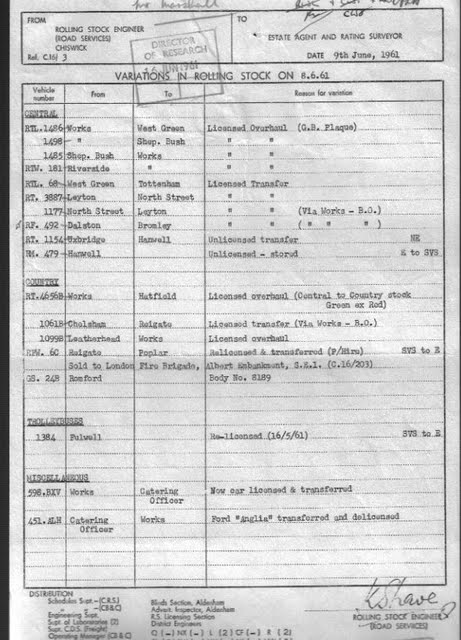 Mr Marshall
FROM
ROLLING STOCK ENGINEER
(ROAD SERVICES)
CHISWICK
Ref. C.16/ 3
DIRECTOR
OF RESEARCH
JUN 1961
TO
ESTATE AGENT AND RATING SURVEYOR
DATE 9th June, 1961
VARIATIONS IN ROLLING STOCK ON 8.6.61
Vehicle number From To Reason for variation
CENTRAL
RTL.1486 Works West Green Licensed Overhaul (G.B. Plaque)
1498 " Shep. Bush " "
1485 Shep. Bush Works " "
RTW. 181 Riverside " " "
RTL. 68 West Green Tottenham Licensed Transfer
RT. 3887 Leyton North Street " "
1177 North Street Leyton " " (Via Works - B.O.)
RF. 492 Dalston Bromley " " ( " " " )
RT. 1154 Uxbridge Hanwell Unlicensed transfer NE
RM. 479 Hanwell Unlicensed - stored E to SVS
COUNTRY
RT.4656B Works Hatfield Licensed overhaul (Central to Country stock
Green ex Red)
1061B Chelsham Reigate Licensed transfer (Via Works - B.O.)
1099B Leatherhead Works Licensed overhaul
RFW. 6C Reigate Poplar Relicensed & transferred (P/Hire) SVS to E
Sold to London Fire Brigade, Albert Embankment, S.E.1. (C.16/203)
GS. 24B Romford Body No. 8189
TROLLEYBUSES
1384 Fulwell Re-licensed (16/5/61) SVS to E
MISCELLANEOUS
598.BXV Works Catering
Officer New car licensed & transferred
451.ALH Catering
Officer Works Ford "Anglia" transferred and delicensed
DISTRIBUTION
Schedules Supt. -(C.R.S.)
" " -(CB&C)
Engineering Supt.
Supt. of Laboratories (2)
Supt. C.D.S. (Freight)
Operating Manager (CB&C)
Blinds Section, Aldenham
Advert. Inspector, Aldenham
R.S. Licensing Section
District Engineers
Q (-) NX (-) L (2) CF (-) R (2)
ROLLING STOCK ENGINEER
(ROAD SERVICES)